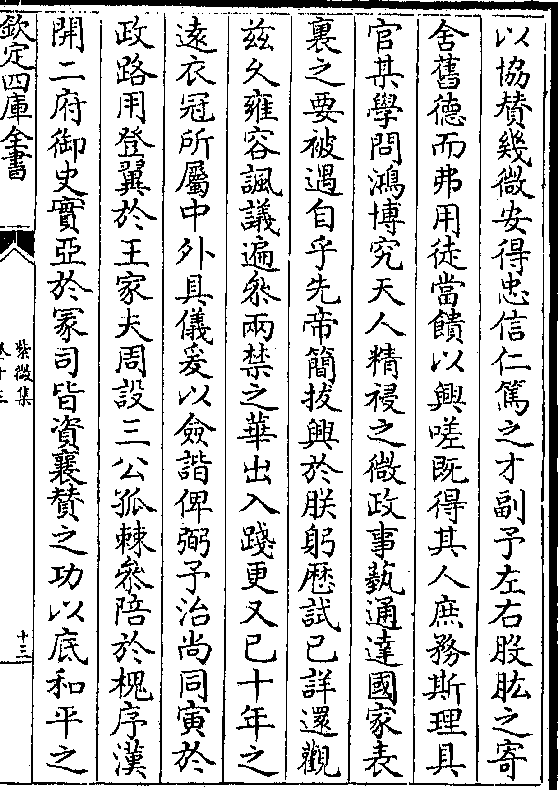 以協賛幾微安得忠信仁篤之才副予左右股肱之寄
舍舊徳而弗用徒當饋以興嗟既得其人庶務斯理具
官某學問鴻博究天人精祲之微政事藝通達國家表
裏之要被遇自乎先帝簡拔興於朕躬歴試已詳還觀
兹久雍容諷議遍叅兩禁之華出入踐更又已十年之
遠衣冠所屬中外具儀爰以僉諧俾弼予治尚同寅於
政路用登翼於王家夫周設三公孤棘叅陪於槐序漢
開二府御史實亞於冢司皆資襄賛之功以底和平之
欽定四庫全書
紫微集
卷十三
十三